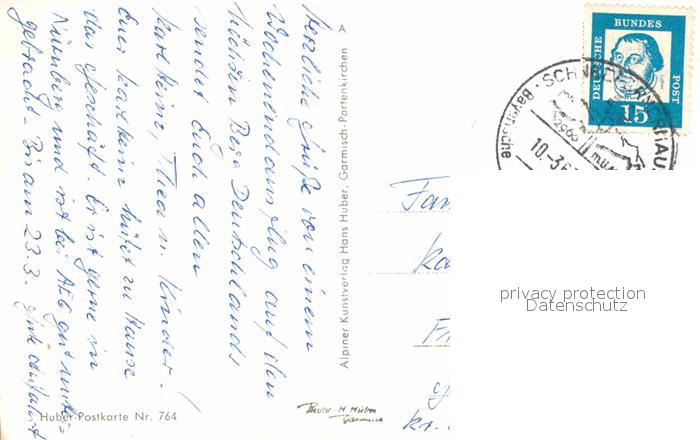 Herzliche Grüße von einem
Wochenendausflug auf den
höchsten Berg Deutschlands
sendet Euch allen
Karlheinz, Thea u. Kinder!
Euer Karlheinz hütet zu Hause
das Geschäft. Er ist gerne in
Nürnberg und ist bei AEG gut unter-
gebracht. Bin am 23.3.
A
Alpiner Kunstverlag Hans Huber, Garmisch-Partenkirchen
Huber-Postkarte Nr. 764
Photo H. Huber
Garmisch
DEUTSCHE
BUNDES
POST
15
SCHNEEFERNERHAUS
Bayerische
2966
10.-3.6
Fam
Ka
privacy protection
Datenschutz